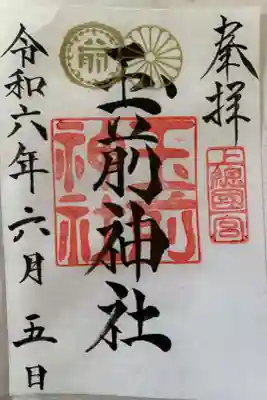 奉拝
上総国一宮
玉前神社
玉前神社
前
令和六年六月五日